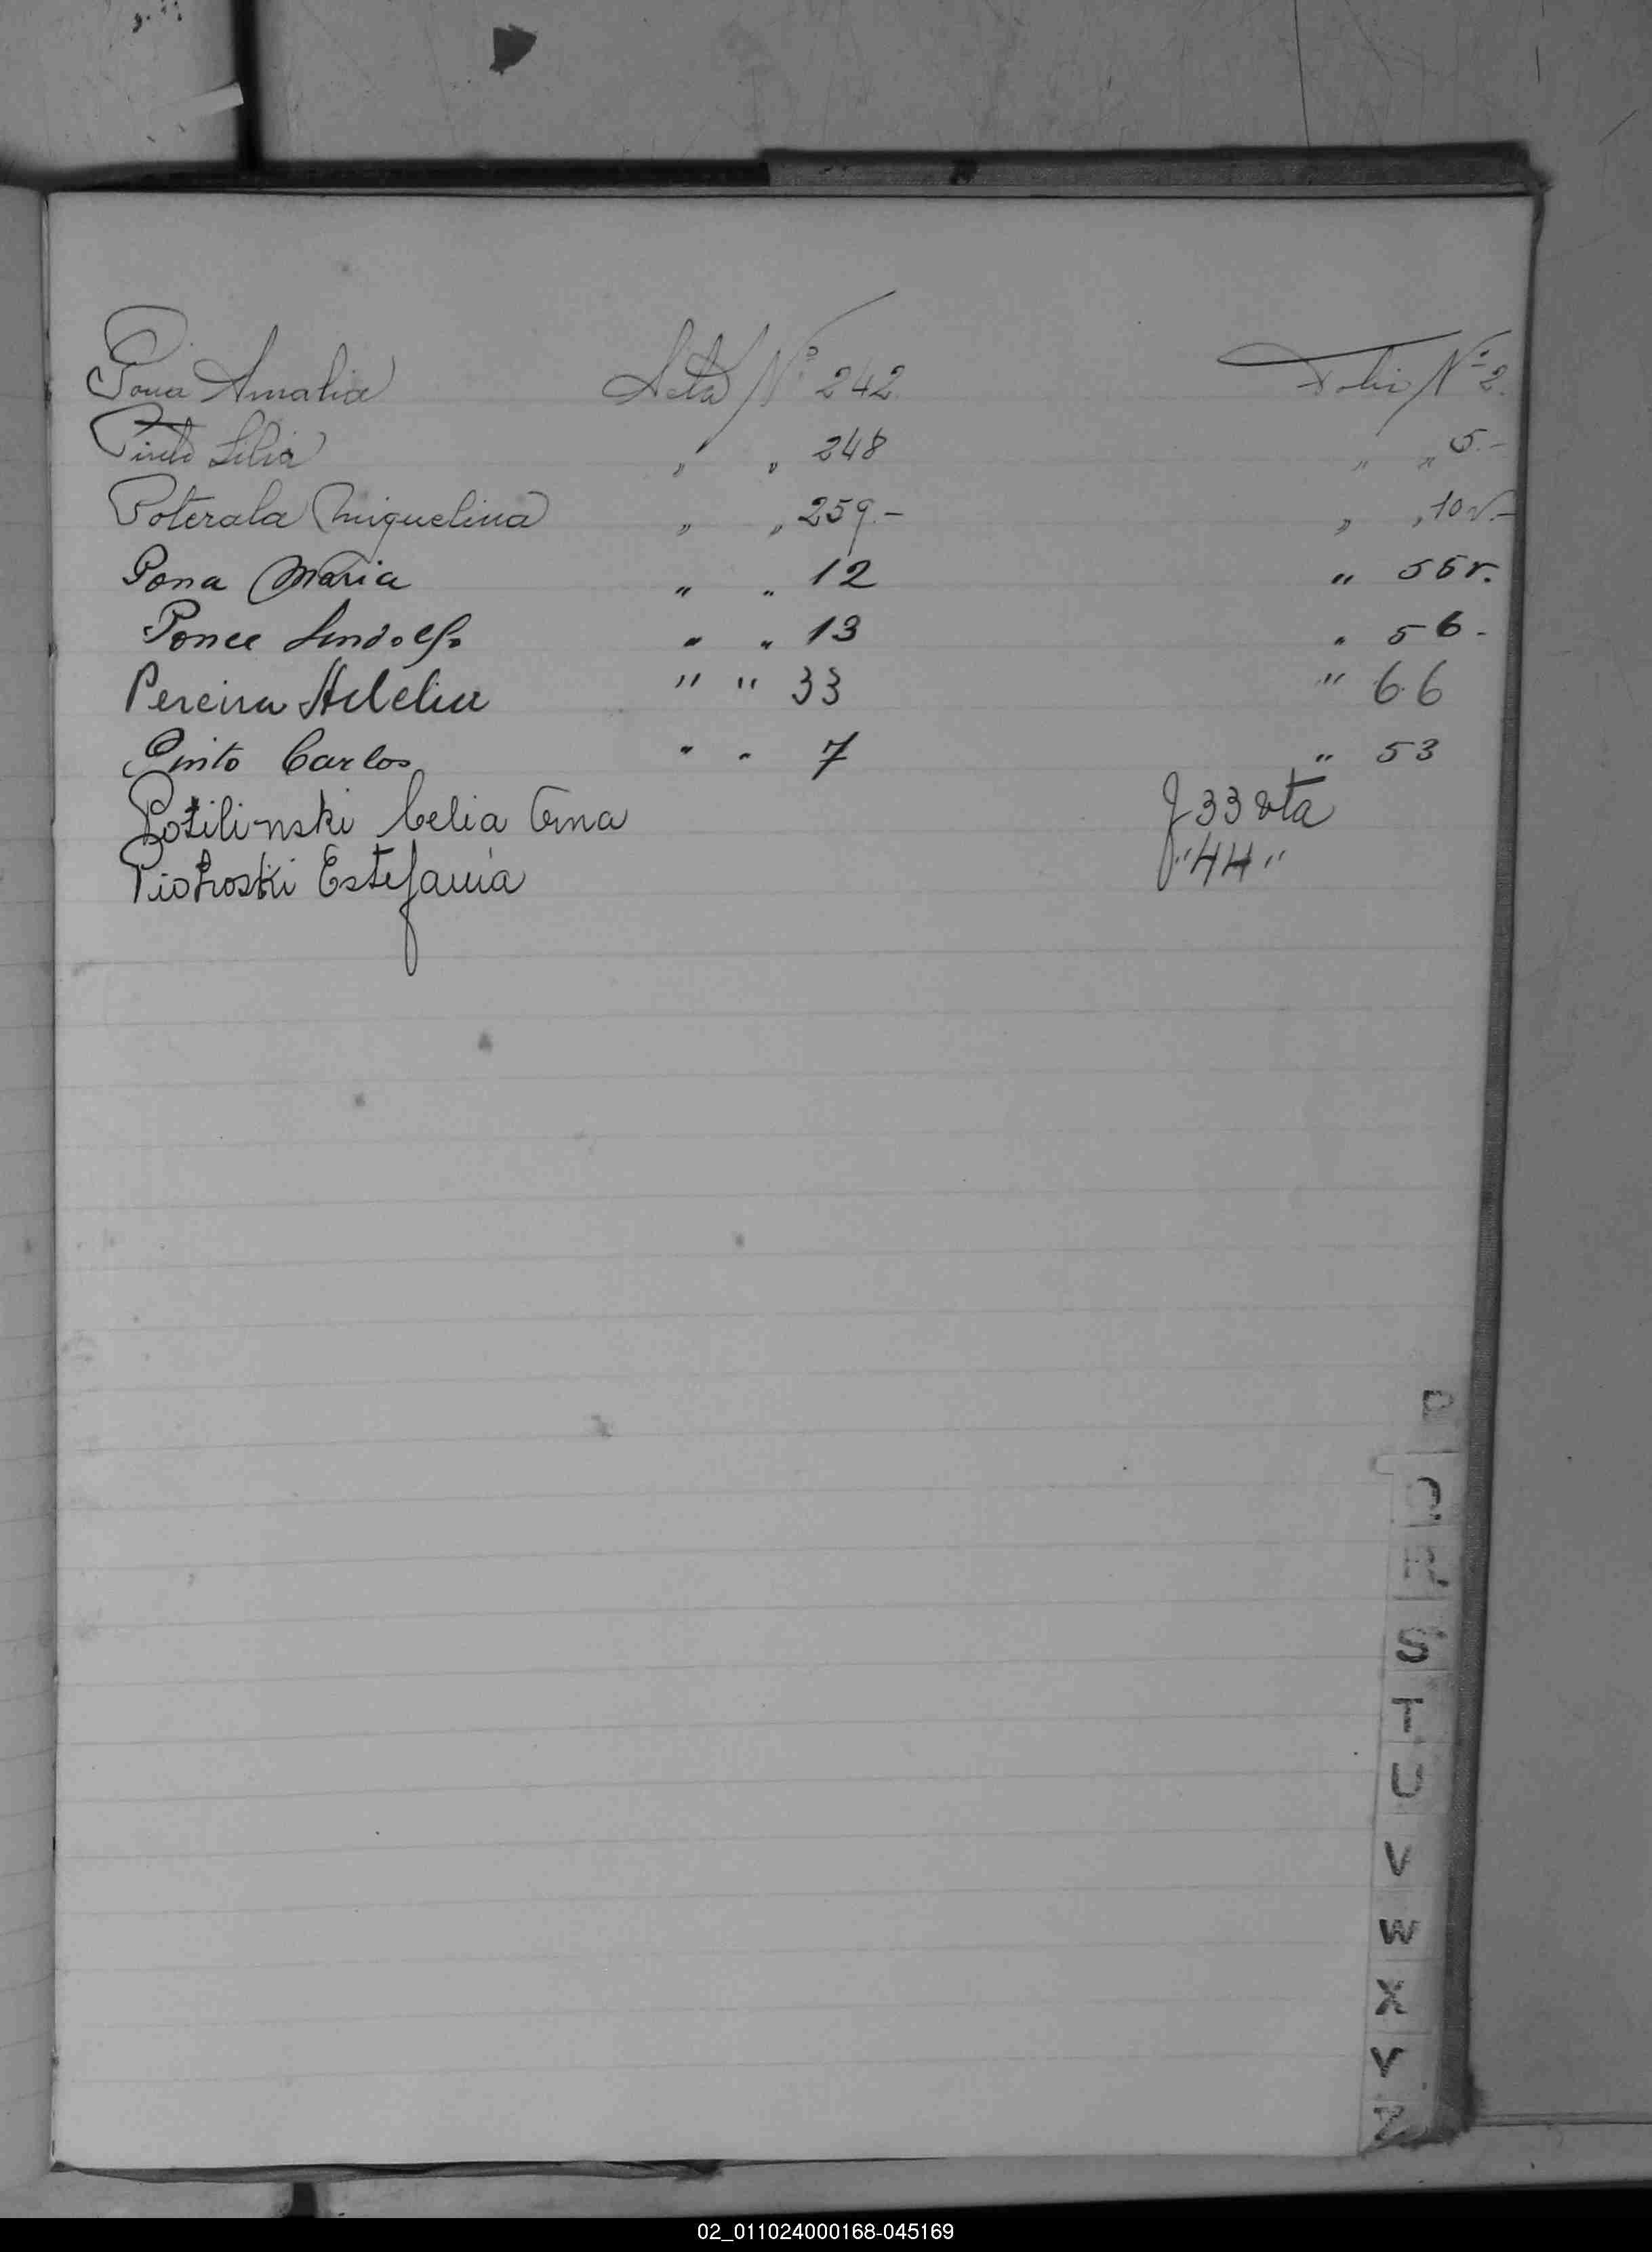 Pona Amalia Acta Nº 242 Folio Nº 2.
Pinto Lilia " " 248 " " 5.-
Poterala Miguelina " " 259.- " " 10v.-
Pona Maria " " 12 " 55v.
Ponce Lindolfo " " 13 " 56-
Pereira Adelia " " 33 " 66
Pinto Carlos " " 7 " 53
Potilinski Celia Ema f 33 vta
Piotroski Estefania f "44"
P
Q
R
S
T
U
V
W
X
Y
Z
02_011024000168-045169